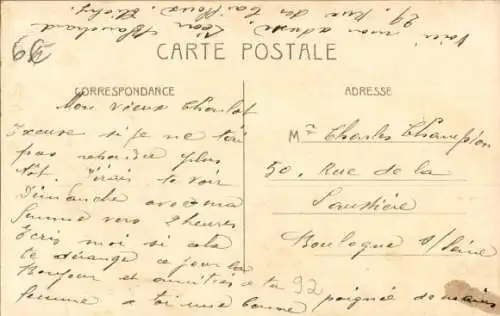 Voici mon adresse Léon Blanchard
29, Rue des Cailloux. Clichy.
CARTE POSTALE
CORRESPONDANCE
Mon vieux Charlot
Excuse si je ne t'ai
pas répondu plus
tôt. J'irai te voir
Dimanche avec ma
femme vers 2 heures
Ecris moi si cela
te dérange ce jour là
Bonjour et amitiés à ta
femme à toi une bonne poignée de mains
ADRESSE
Mr Charles Champion
50, Rue de la
Saussière
Boulogne s/Seine
92